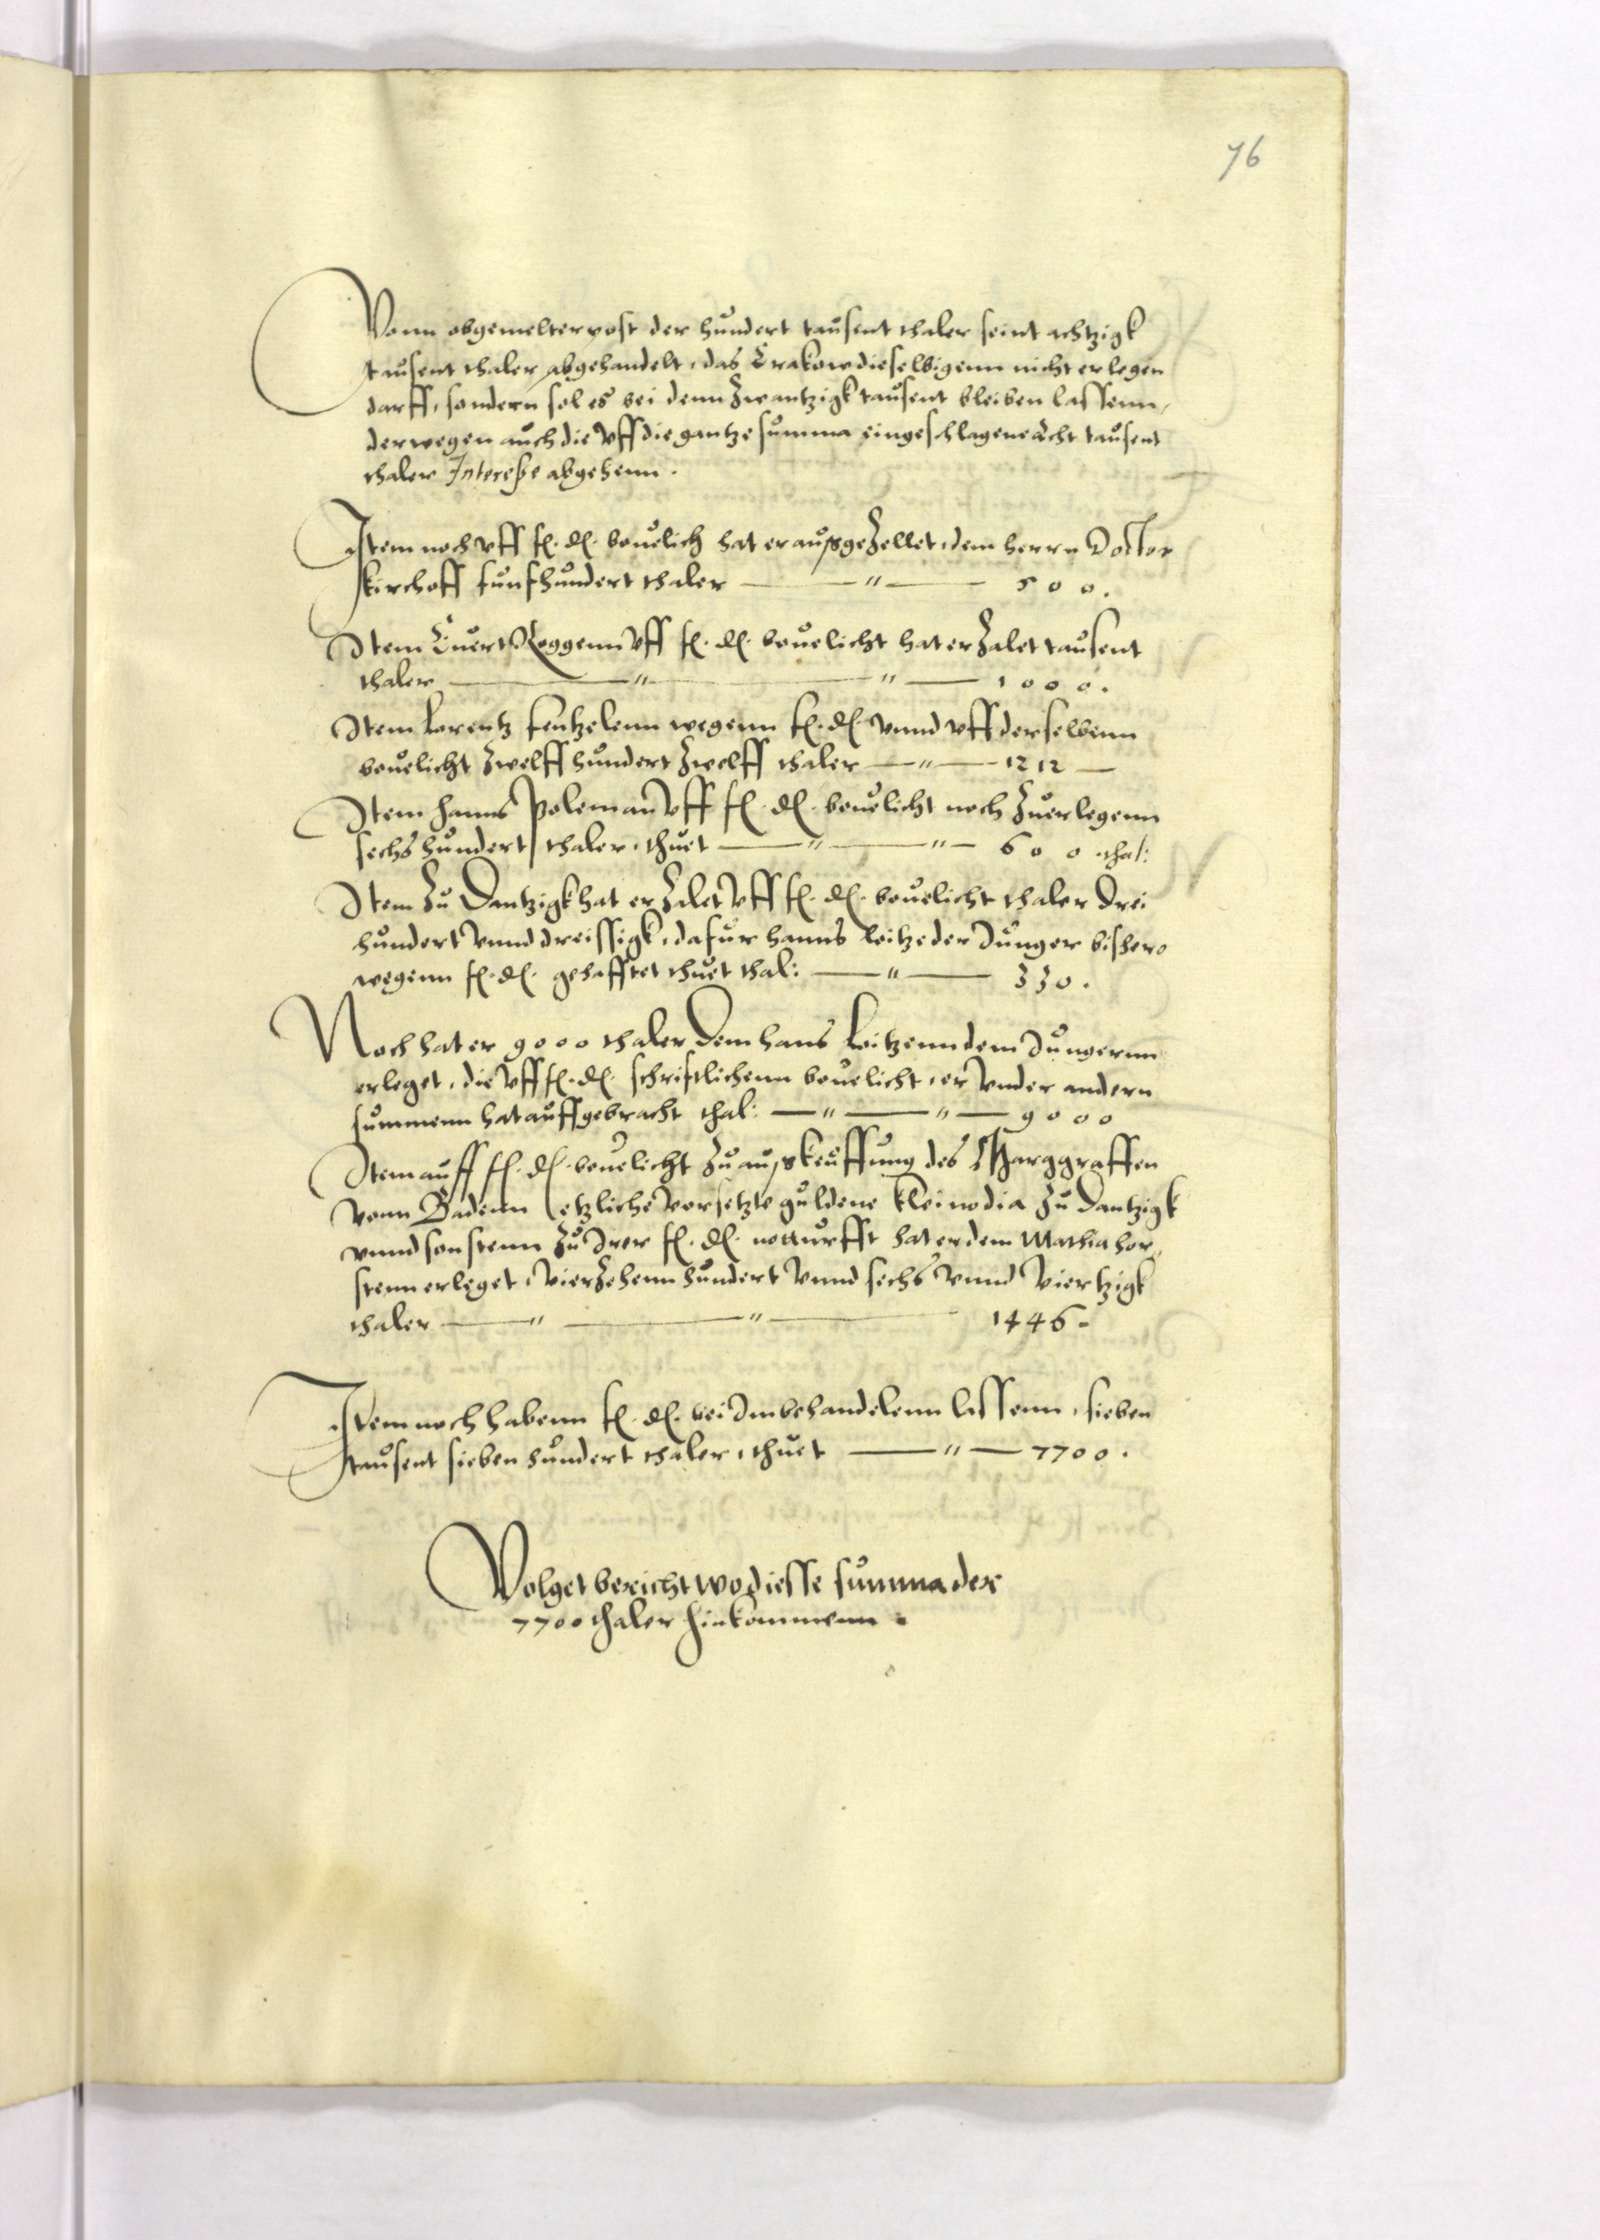 76
Vonn obgemelter post der hundert tausent thaler seint achtzigk
tausent thaler abgehandelt, das Krakow dieselbigenn nicht erlegen
darff, sondern sol es bei denn zwantzigk tausent bleiben lassenn,
derwegen auch die vff die gantze summa eingeschlagene acht tausent
thaler Interesse abgehenn.
Item noch vff f. d. beuelich hat er außgezellet, dem herrn Doctor
kirchoff funfhundert thaler — " — 500.
Item Euert Roggenn vff f. d. beuelicht hat er zalet tausent
thaler — " — " — 1000.
Item Lorentz fentzelenn wegenn f. d. vnnd vff derselbenn
beuelicht zwelff hundert zwelff thaler — " — 1212 —
Item hanns Poleman vff f. d. beuelicht noch zuerlegenn
sechs hundert thaler, thuet — " — " — 600 thal:
Item zu Dantzigk hat er zalet vff f. d. beuelicht thaler drei
hundert vnnd dreissigk, dafur hanns loitze der Junger bishero
wegenn f. d. gehafftet thuet thal: — " — 330.
Noch hat er 9000 thaler dem hans Loitzenn dem Jungernn
erleget, die vff f. d. schrifftlichenn beuelicht, er vnder andern
summenn hat auffgebracht thal: — " — " — 9000
Item auff f. d. beuelicht zu außkeuffung des Marggraffen
vonn Badenn etzliche versetzte guldene kleinodia zu Dantzigk
vnnd sonstenn zu Irer f. d. notturfft hat er dem Mathia hor,,
stenn erleget, vierzehenn hundert vnnd sechs vnnd viertzigk
thaler — " — " — 1446.
Item noch habenn f. d. bei Im behandelenn lassenn, sieben
tausent sieben hundert thaler, thuet — " — 7700.
Volget bericht wo diesse summa der
7700 thaler hinkommenn.